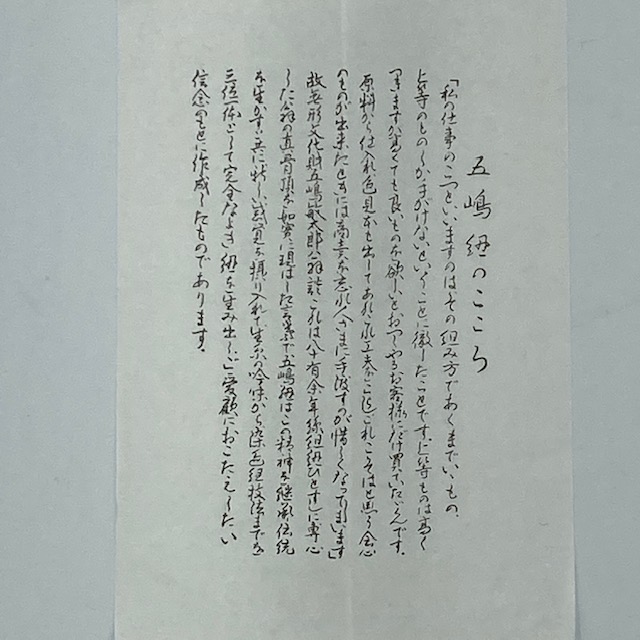 五嶋紐のこころ
「私の仕事の二つといいますのは、その組み方であくまでいゝもの、
上等のものしか手がけないということに徹したことです。上等ものは高く
つきますが高くても良いものを欲しいとおっしゃるお客様にだけ買っていただくんです。
原料から仕入れ色見本も出してあれこれ工夫をこらしこれこそはと思う会心
のものが出来たときには商売を忘れ人さまに手渡すのが惜しくなってしまいます」
故無形文化財五嶋敏太郎翁談 これは八十有余年絲組紐ひとすじに専心
した翁の真骨頂を如実に現はした言葉で五嶋紐はこの精神を継承伝統
を生かすと共に新しい感覚を摂り入れて生糸の吟味から染色組技法までを
三位一体として完全なよき紐を生み出し、ご愛顧におこたえしたい
信念のもとに作成したものであります。